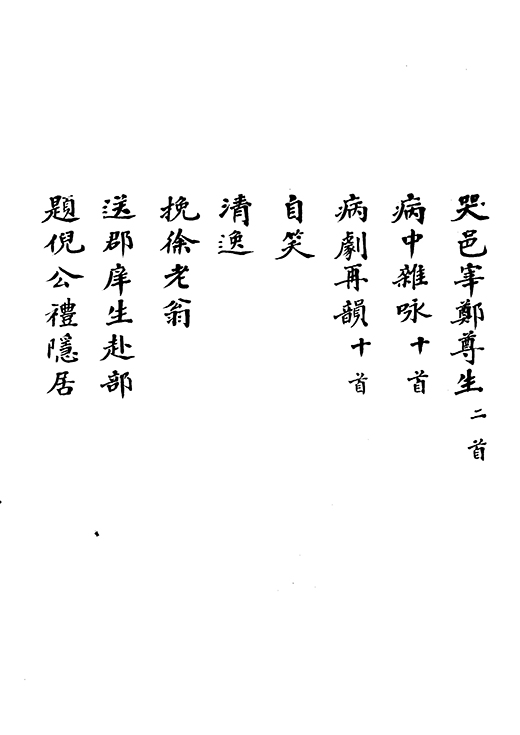 哭邑宰鄭尊生二首
病中雜咏十首
病劇再韻十首
自笑
清逸
挽徐老翁
送郡庠生赴部
題倪公禮隱居